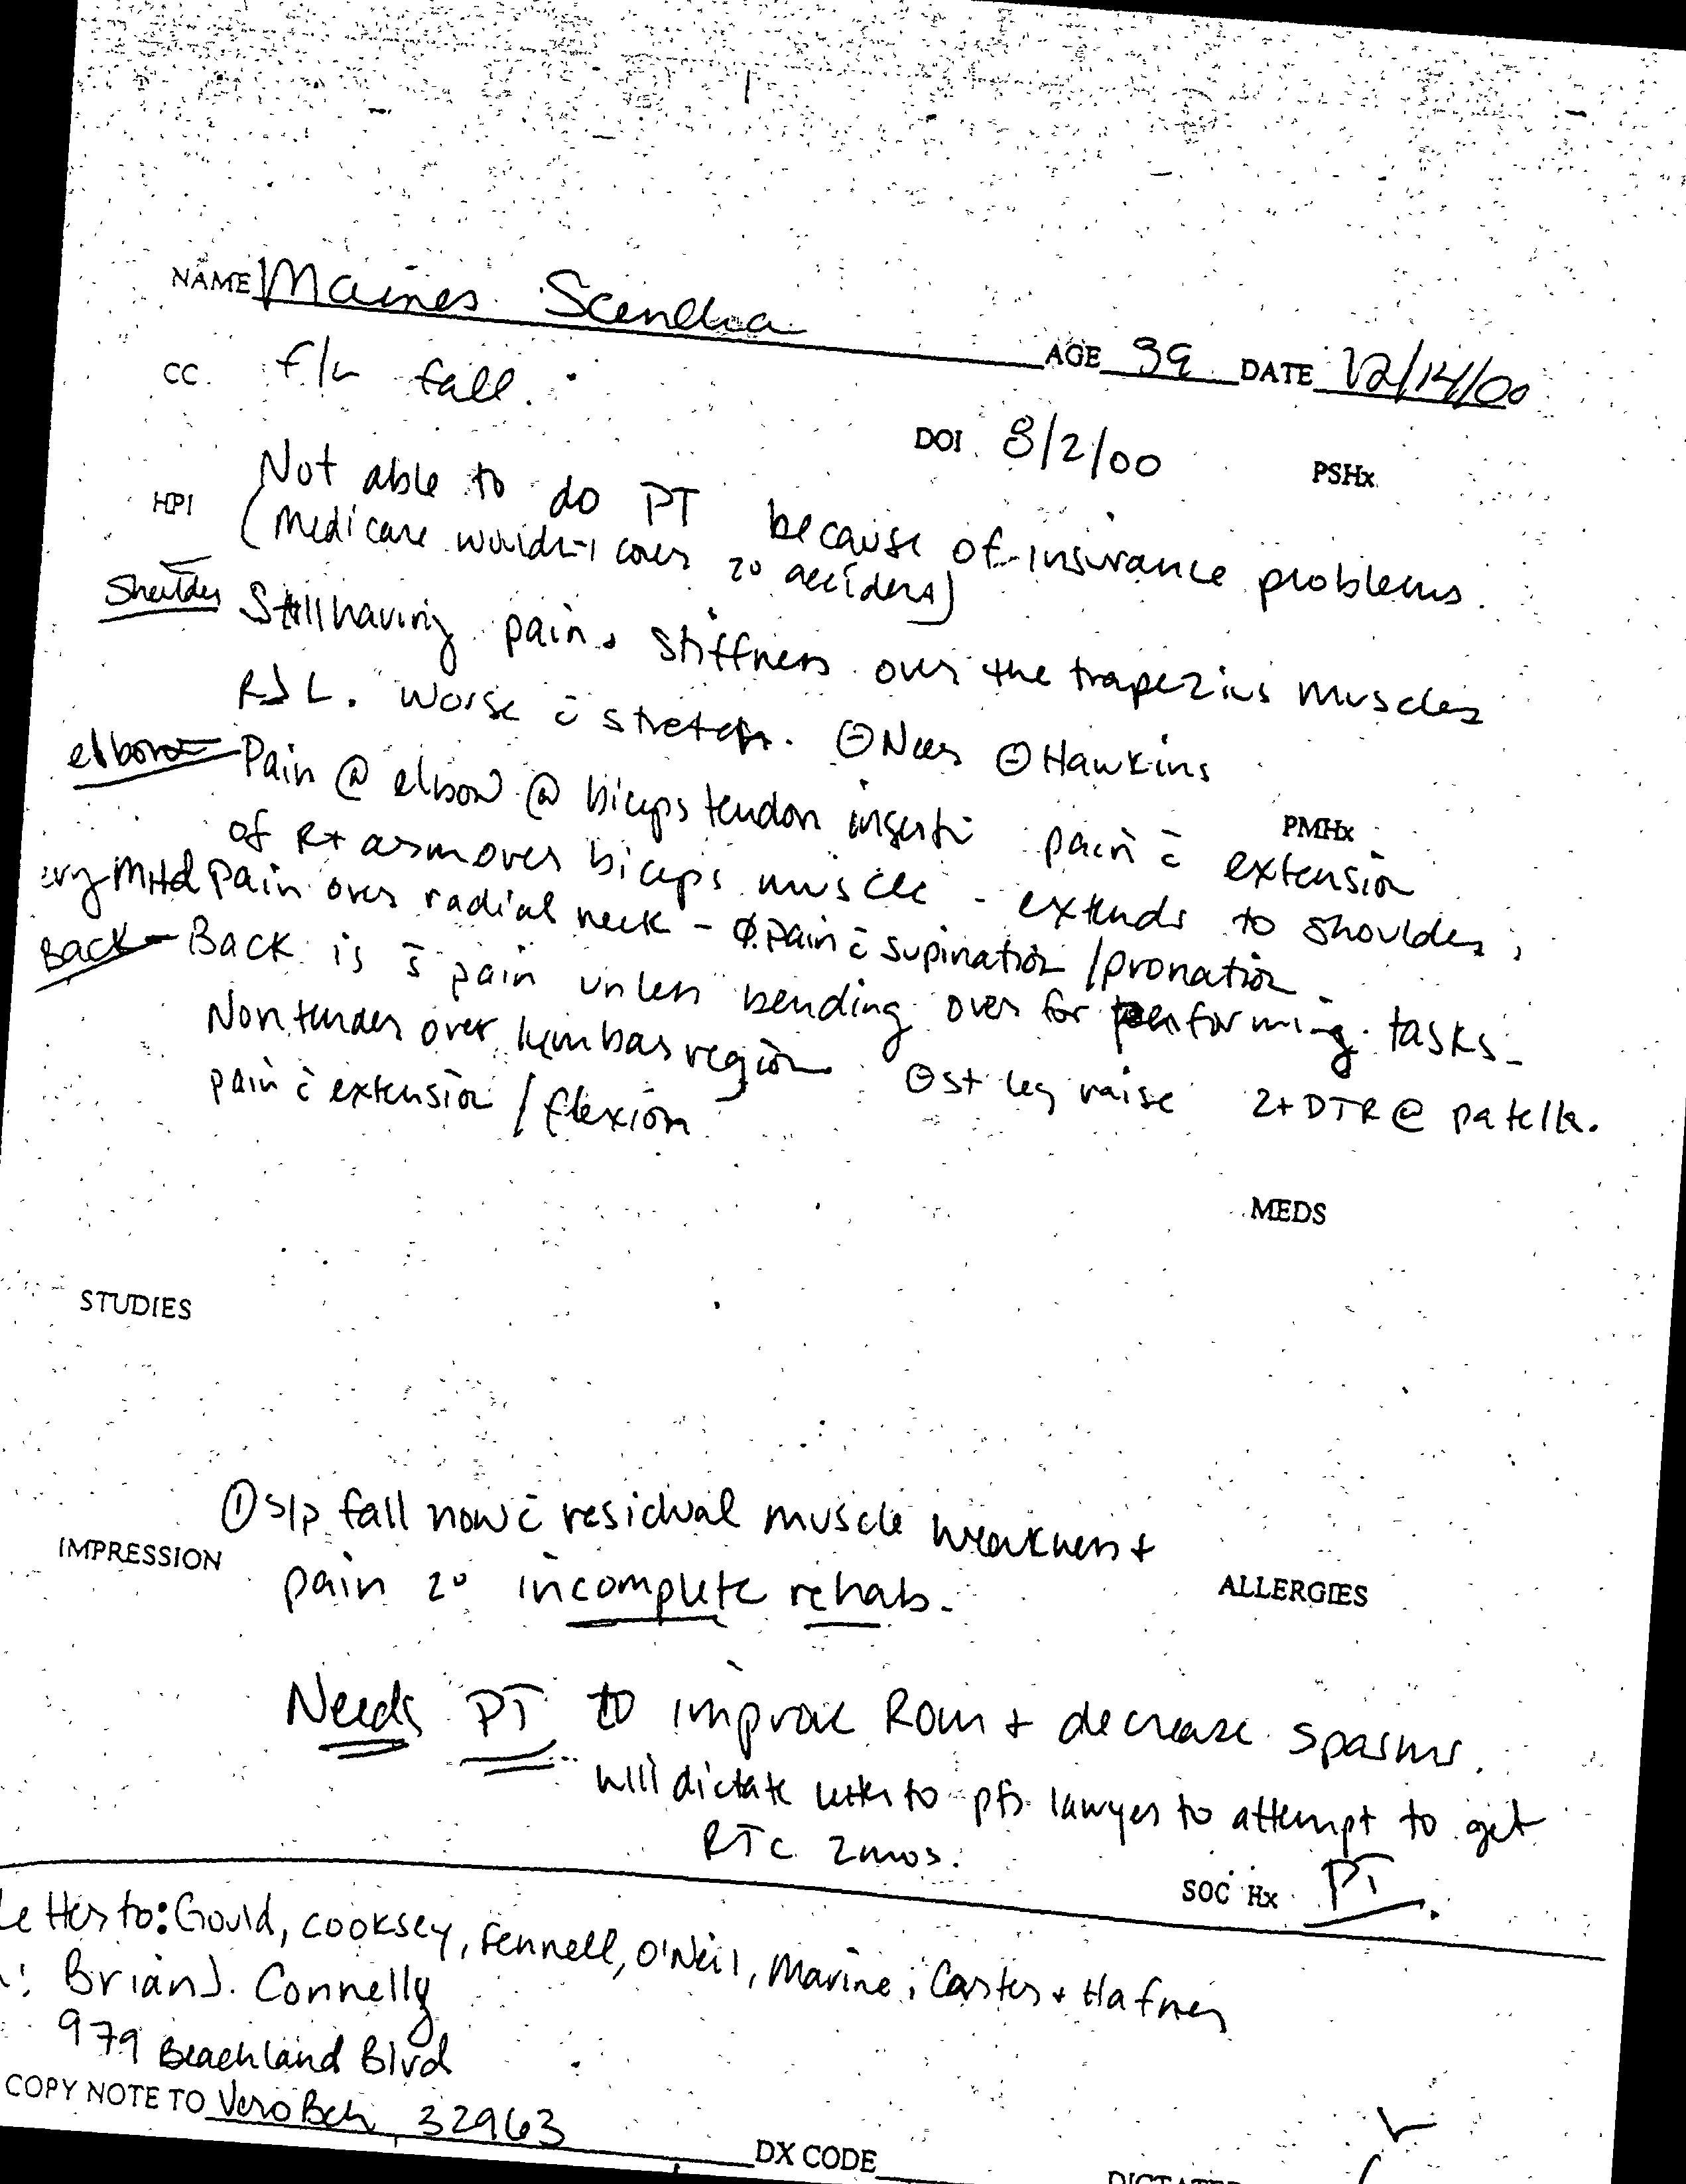 NAME Maines Scendra
AGE 39 DATE 12/14/00
CC. f/u fall.
DOI 8/2/00
PSHx
HPI Not able to do PT because of insurance problems.
(Medicare wouldn't cover 2° accident)
Shoulder Still having pain + stiffness over the trapezius muscles
R + L. Worse c̄ stretch. ⊖ Neers ⊖ Hawkins
elbow - Pain @ elbow @ biceps tendon inserti pain c̄ extension
PMHx
of Rt arm over biceps muscle - extends to shoulder;
Mild pain over radial neck - Ø pain c̄ supination / pronation
Back - Back is s̄ pain unless bending over for performing tasks -
Nontender over lumbar region ⊖ st leg raise 2+ DTR @ patella.
pain c̄ extension / flexion
MEDS
STUDIES
IMPRESSION ① s/p fall now c̄ residual muscle weakness +
pain 2° incomplete rehab.
ALLERGIES
Needs PT to improve ROM + decrease spasms.
will dictate letter to pts lawyer to attempt to get
PT.
RTC 2mos.
SOC Hx
Letter to: Gould, Cooksey, Fennell, O'Neil, Marine, Carter + Hafner
: Brian J. Connelly
979 Beachland Blvd
COPY NOTE TO Vero Bch, 32963
DX CODE